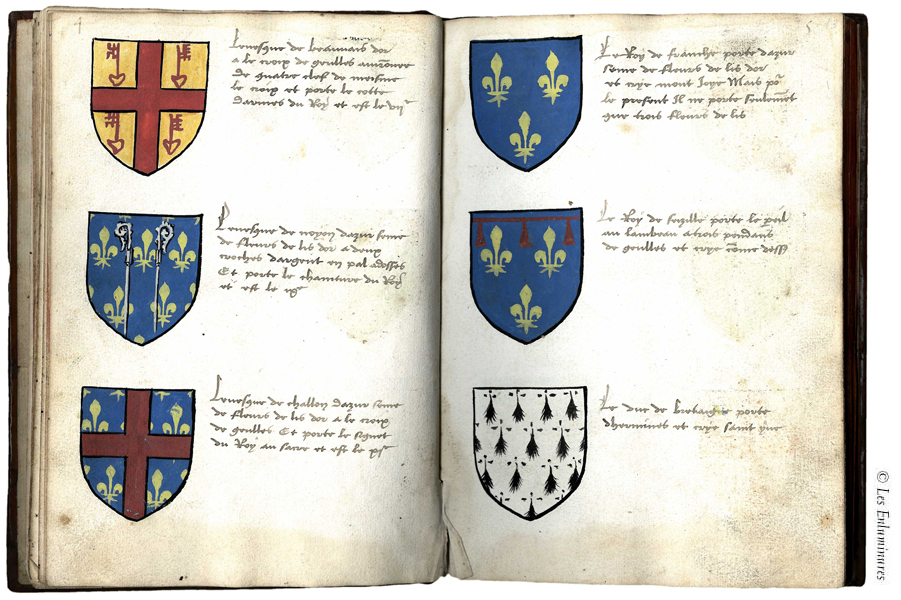 4
Levesque de beauvais dor
a le croix de geulles auironee
de quatre clef de meisme
le croix et porte le cotte
darmes du Roy et est le vij
Levesque de noyon dazur seme
de fleurs de lis dor a deux
croches dargent en pal adosses
Et porte le chainture du Roy
et est le
Levesque de challon dazur seme
de fleurs de lis dor a le croix
de geulles Et porte le signet
du Roy au sacre et est le
5
Le Roy de franche porte dazur
seme de fleurs de lis dor
et crye mont Joye Mais
le present Il ne porte seulemet
que trois fleurs de lis
Le Roy de sezille porte le peil
au lambeau a trois pendans
de geulles et crye come dess
Le duc de bretaigne porte
dhermines et crye saint yue
© Les Enluminures